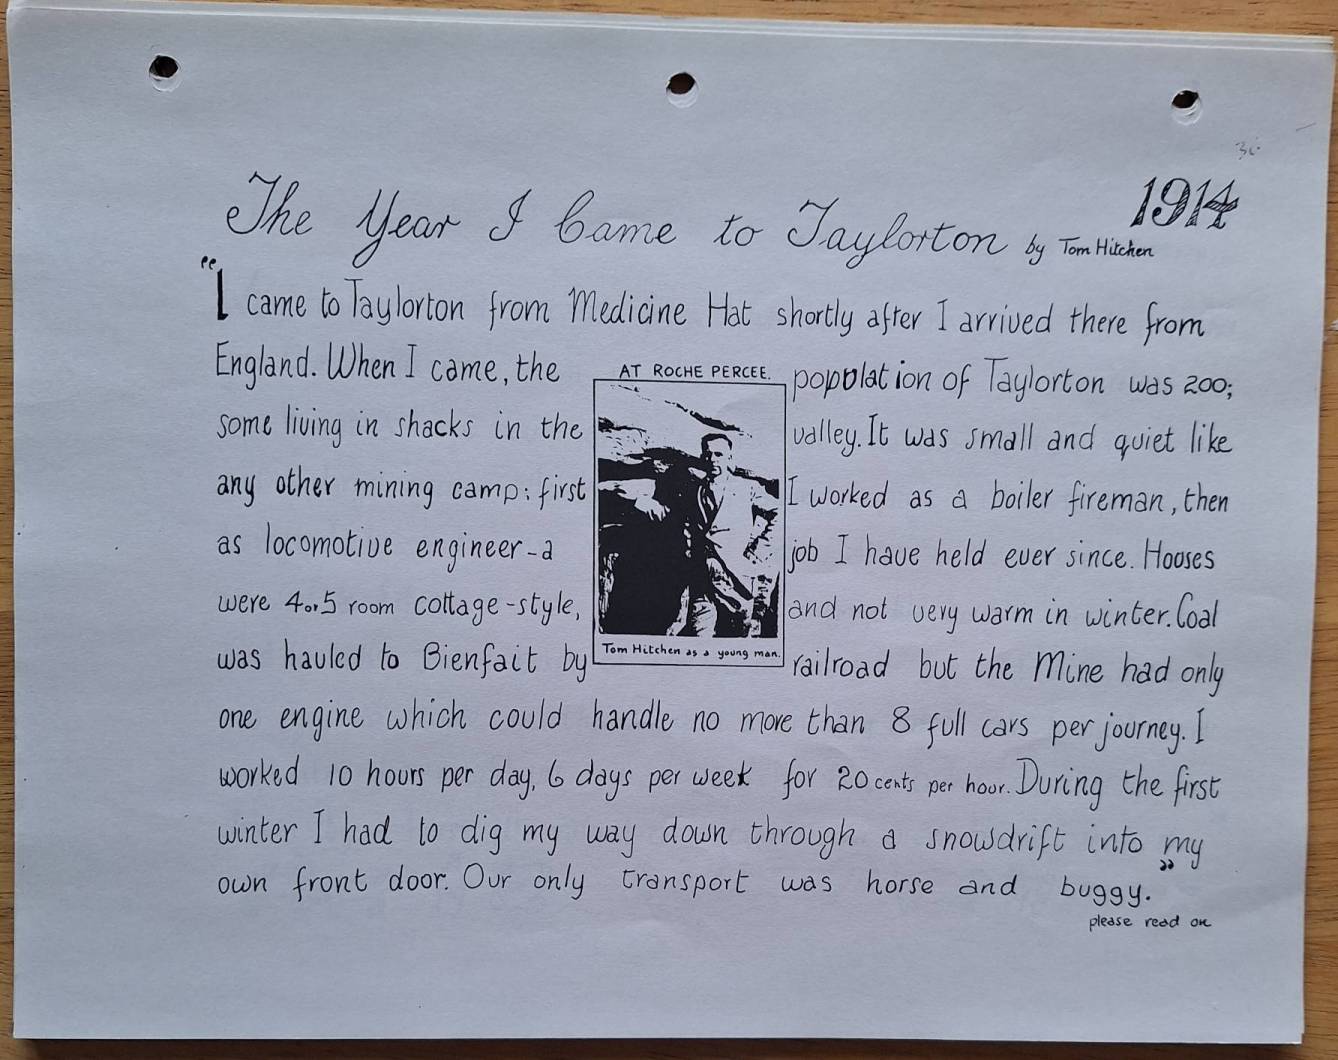 1914
The Year I Came to Taylorton by Tom Hitchen
"I came to Taylorton from Medicine Hat shortly after I arrived there from
England. When I came, the population of Taylorton was 200;
some living in shacks in the valley. It was small and quiet like
any other mining camp; first I worked as a boiler fireman, then
as locomotive engineer - a job I have held ever since. Houses
were 4 or 5 room cottage-style, and not very warm in winter. Coal
was hauled to Bienfait by railroad but the Mine had only
one engine which could handle no more than 8 full cars per journey. I
worked 10 hours per day, 6 days per week for 20 cents per hour. During the first
winter I had to dig my way down through a snowdrift into my
own front door. Our only transport was horse and buggy."
please read on
AT ROCHE PERCEE.
Tom Hitchen as a young man.